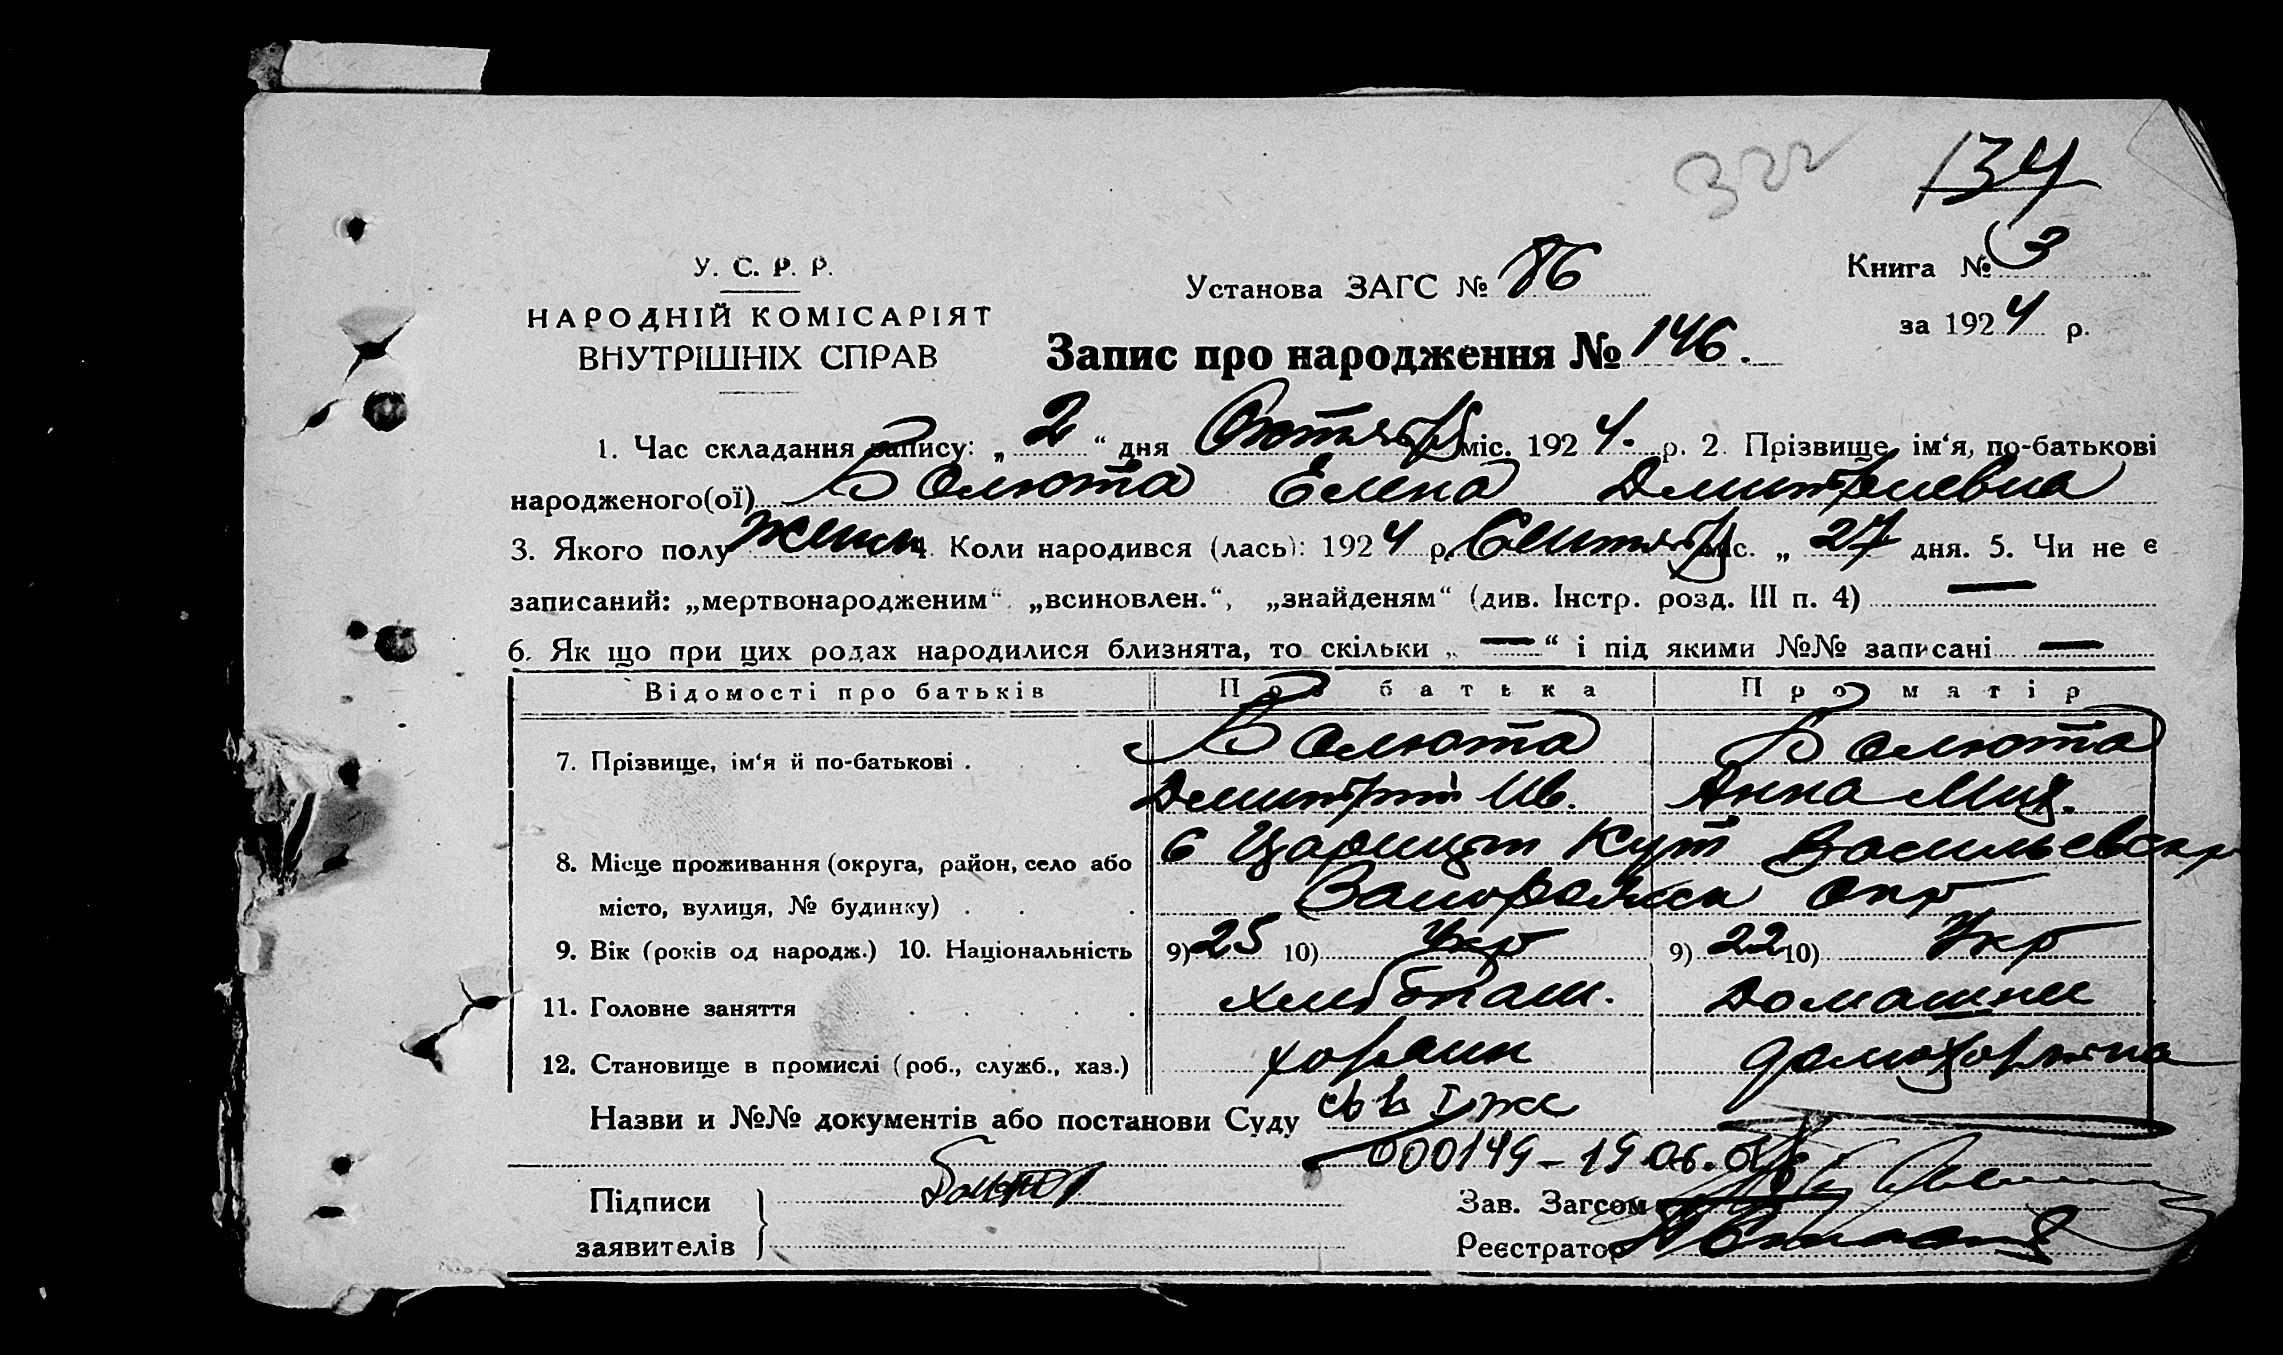 322
134
У. С. Р. Р.
НАРОДНІЙ КОМІСАРІЯТ
ВНУТРІШНІХ СПРАВ
Установа ЗАГС № 86
Книга № 3
за 1924 р.
Запис про народження № 146.
1. Час складання запису: „ 2 “ дня Октябр міс. 1924. р. 2. Прізвище, ім‘я, по-батькові
народженого(ої) Балюта Елена Дмитриевна
3. Якого полу женск 4. Коли народився (лась): 1924 р. Сентябр міс. „ 27 дня. 5. Чи не є
записаний: „мертвонародженим“, „всиновлен.“, „знайденям“ (див. Інстр. розд. III п. 4) —
6. Як що при цих родах народилися близнята, то скільки „ — “ і під якими №№ записані —
Відомості про батьків Про батька Про матір
7. Прізвище, ім‘я й по-батькові . Балюта Балюта
Дмитрий Ив. Анна Мих.
8. Місце проживання (округа, район, село або с Царицын Кут Васильевск р
місто, вулиця, № будинку) . . . Запорожск окр
9. Вік (років од народж.) 10. Національність 9) 25 10) Укр 9) 22 10) Укр
11. Головне заняття хлибопаш. Домашнее
12. Становище в промислі (роб., служб., хаз.) хозяин домохозяйка
Назви и №№ документів або постанови Суду
000149 – 19.06.
Підписи
заявителів
Балюта
Зав. Загсом
Реєстратор